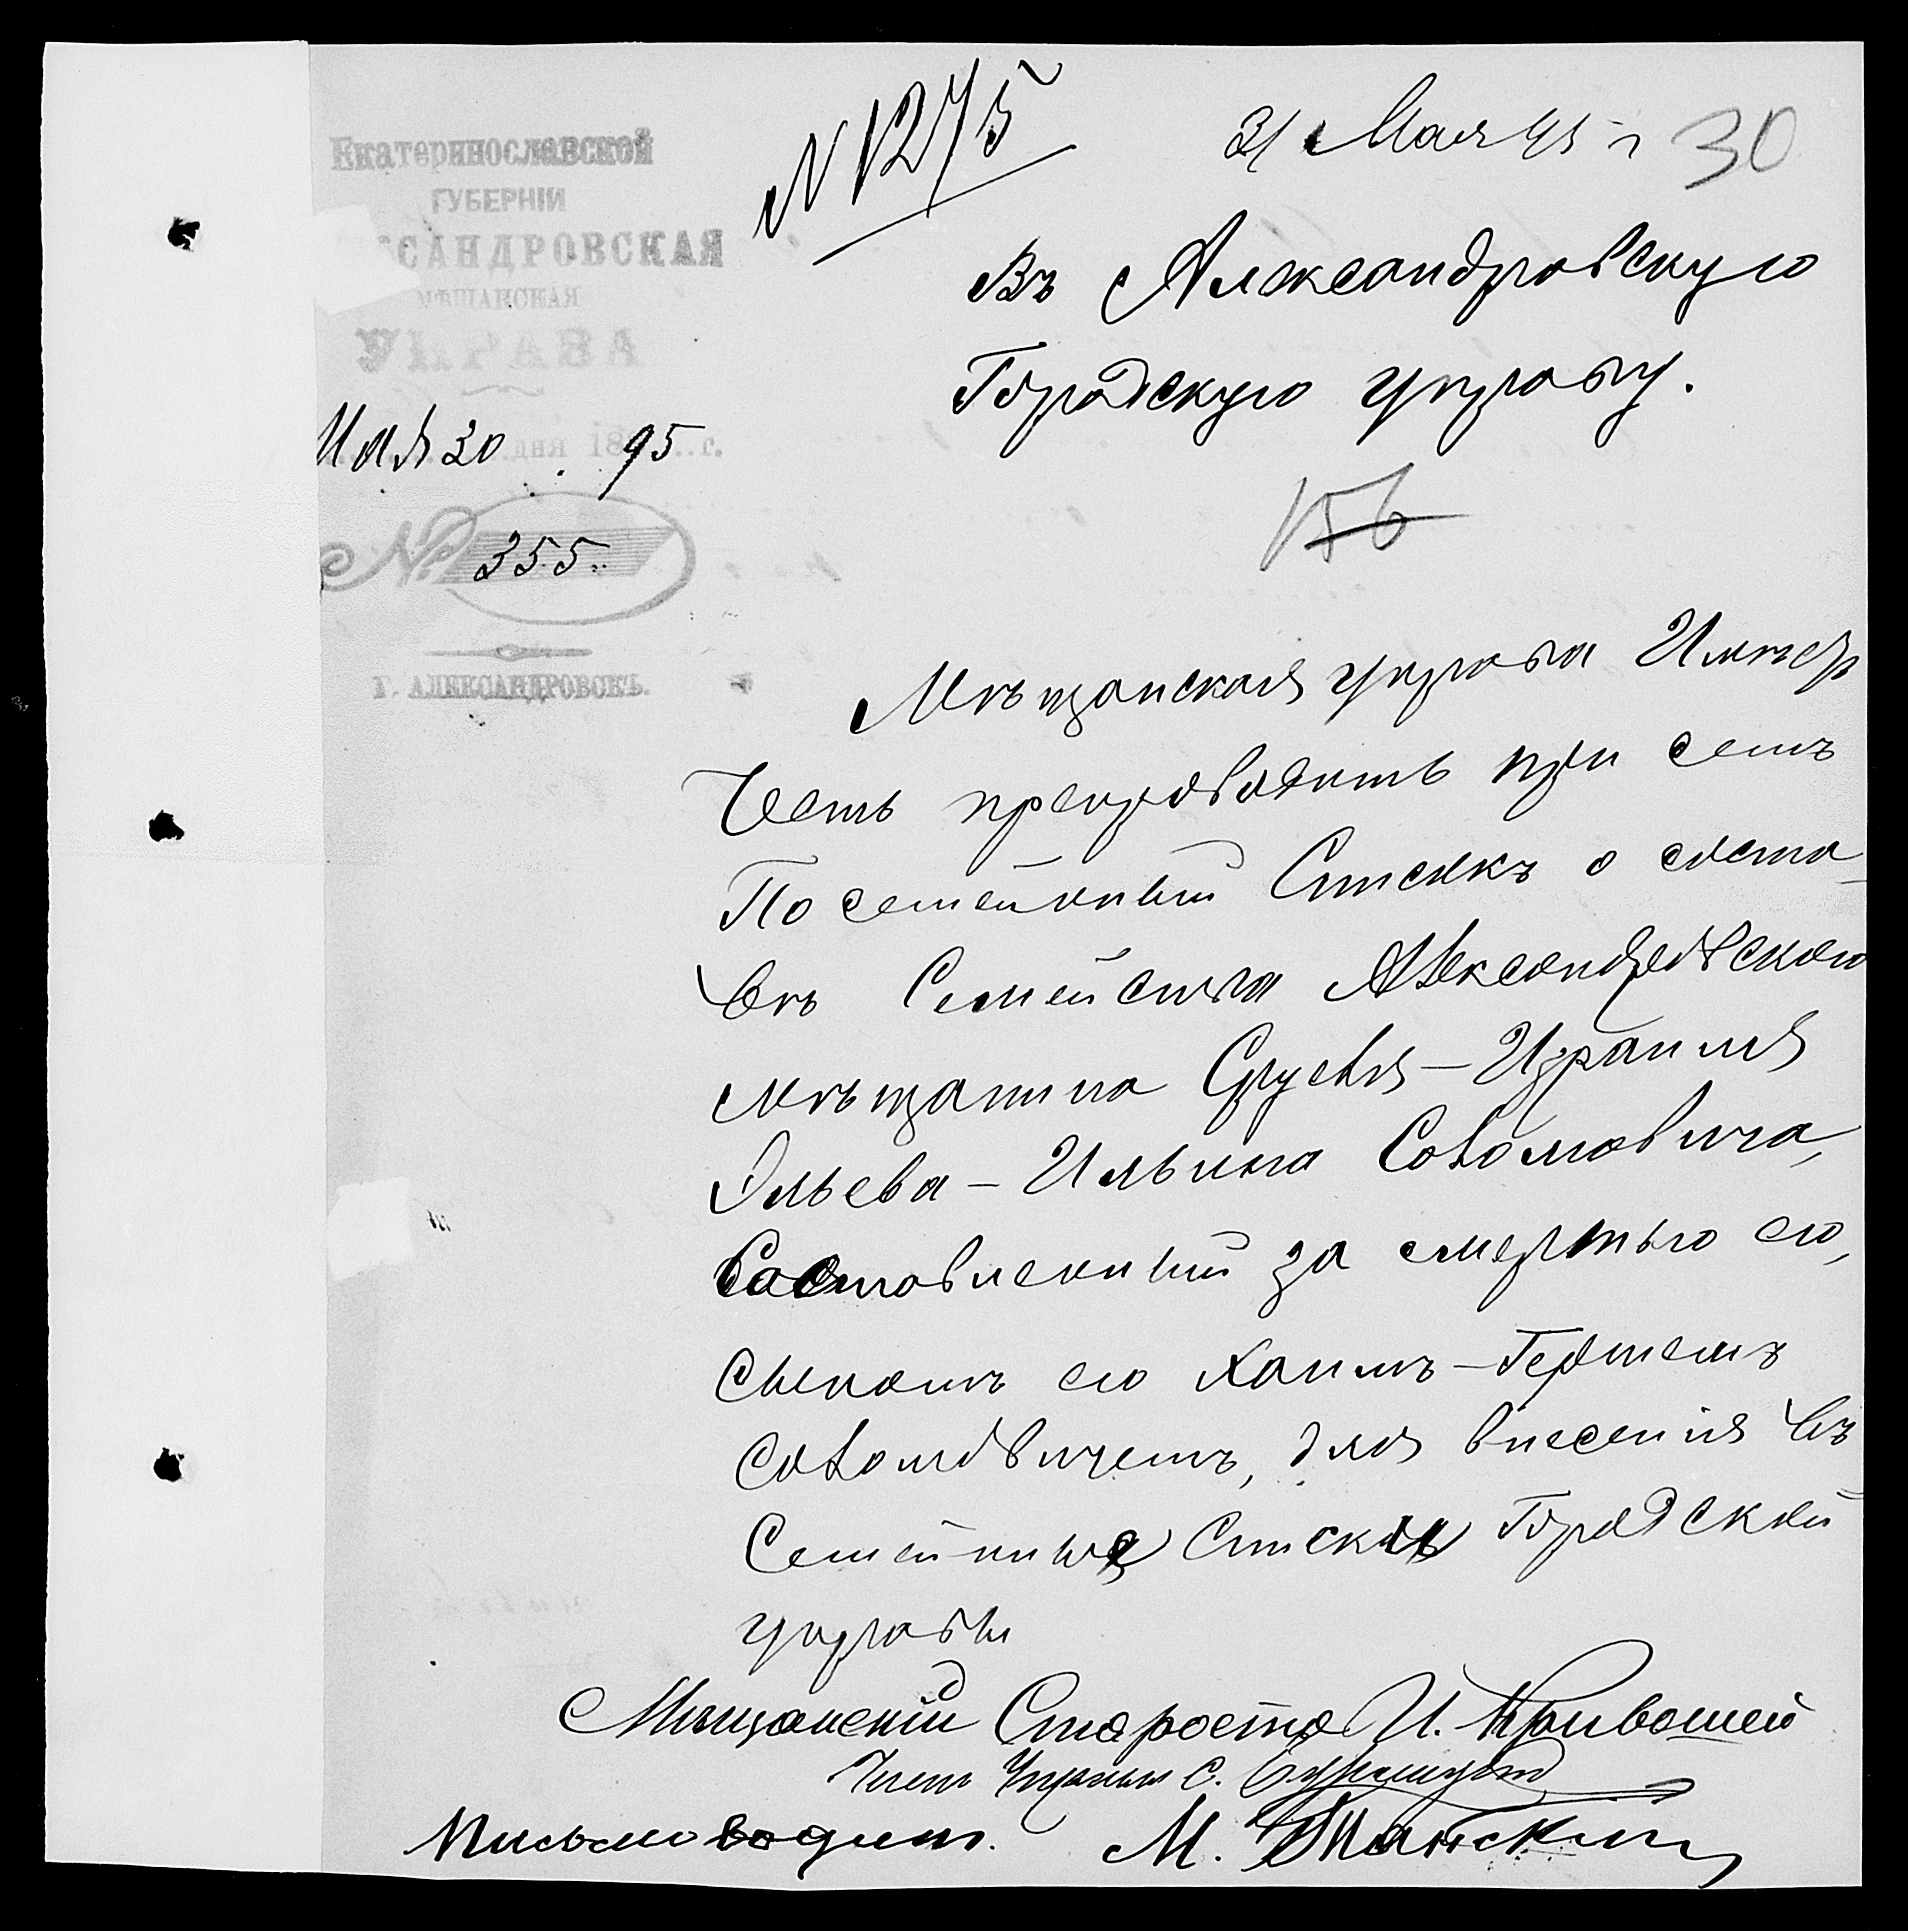 N 1275
31 Мая 95 г
30
Екатеринославской
ГУБЕРНІИ
САНДРОВСКАЯ
МѢЩАНСКАЯ
УПРАВА
Мая 30 дня 1895 г.
№ 355.
Г. АЛЕКСАНДРОВСКЪ.
Въ Александровскую
Городскую управу.
156
Мѣщанская управа Имѣетъ
Честь препроводить при семъ
Посемейный Списокъ о соста-
вѣ Семейства Александровскаго
мѣщанина Сруеля-Израиля
Эльева-Ильина Соколовича,
Составленный за смертью его,
сыномъ его Хаимъ-Гершемъ
Соколовичемъ, для внесенія въ
Семейные Списки Городской
управы
Мѣщанскій Староста И. Кривошей
Членъ Управы С.
Письмоводит. М.